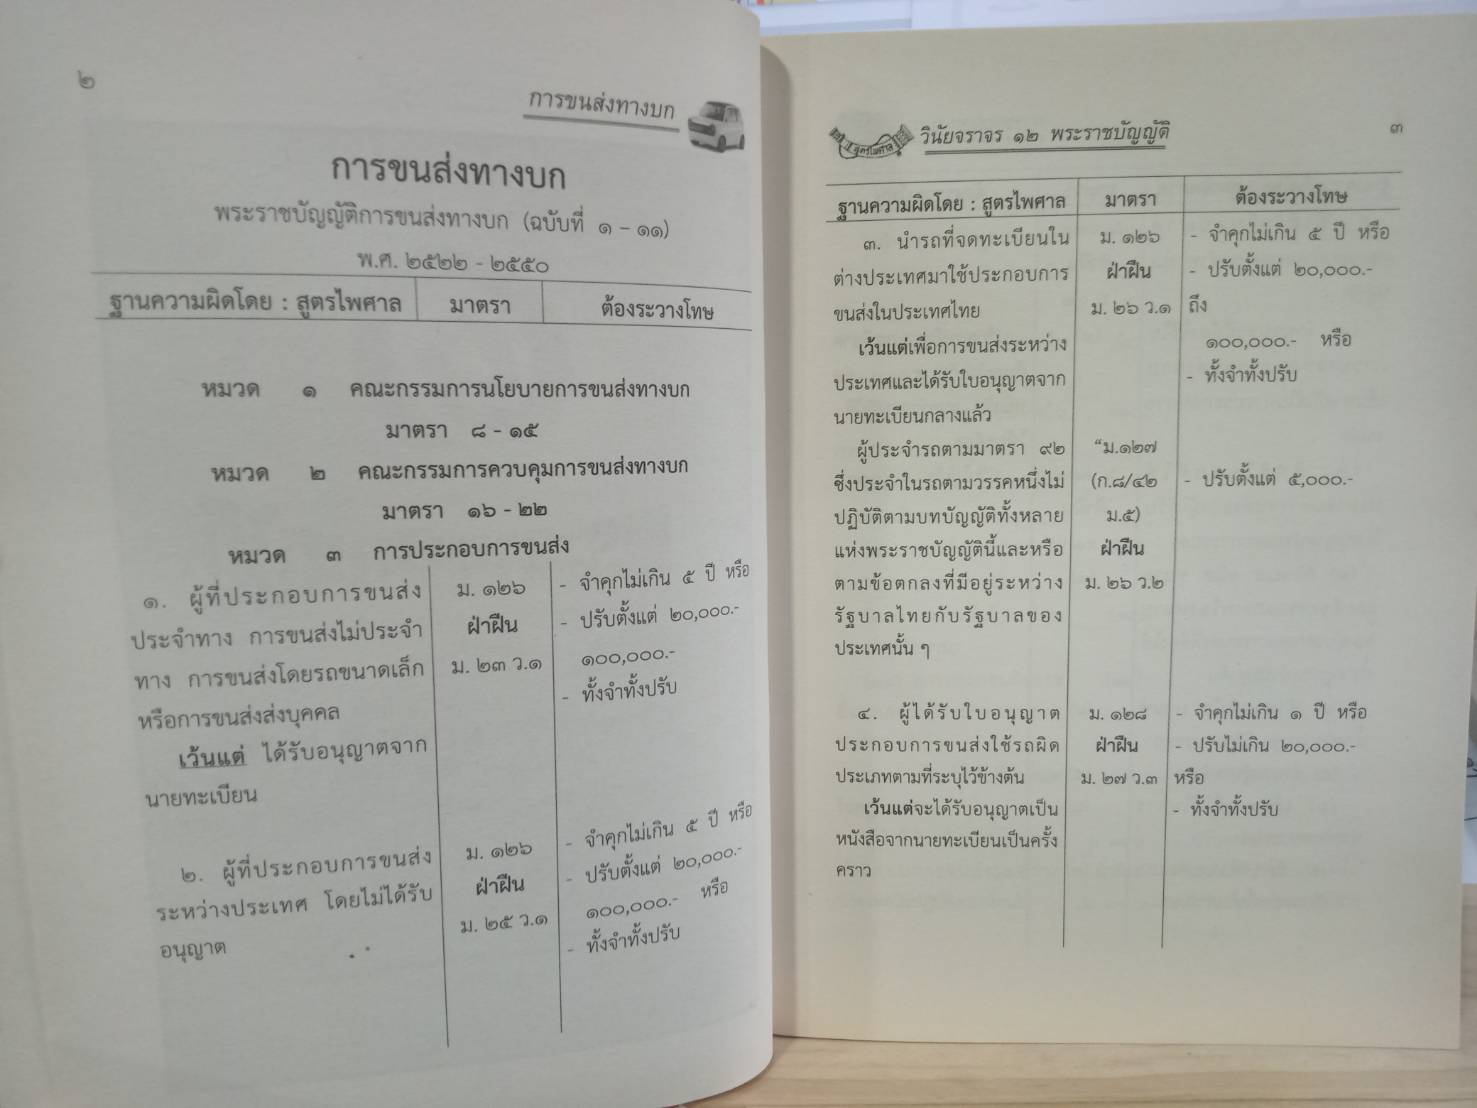 ๒
การขนส่งทางบก
การขนส่งทางบก
พระราชบัญญัติการขนส่งทางบก (ฉบับที่ ๑ - ๑๑)
พ.ศ. ๒๕๒๒ - ๒๕๕๐
ฐานความผิดโดย : สูตรไพศาล มาตรา ต้องระวางโทษ
หมวด ๑ คณะกรรมการนโยบายการขนส่งทางบก
มาตรา ๘ - ๑๕
หมวด ๒ คณะกรรมการควบคุมการขนส่งทางบก
มาตรา ๑๖ - ๒๒
หมวด ๓ การประกอบการขนส่ง
๑. ผู้ที่ประกอบการขนส่ง ม. ๑๒๖ - จำคุกไม่เกิน ๕ ปี หรือ
ประจำทาง การขนส่งไม่ประจำ ฝ่าฝืน - ปรับตั้งแต่ ๒๐,๐๐๐.-
ทาง การขนส่งโดยรถขนาดเล็ก ม. ๒๓ ว.๑ ๑๐๐,๐๐๐.-
หรือการขนส่งส่งบุคคล - ทั้งจำทั้งปรับ
เว้นแต่ ได้รับอนุญาตจาก
นายทะเบียน
๒. ผู้ที่ประกอบการขนส่ง ม. ๑๒๖ - จำคุกไม่เกิน ๕ ปี หรือ
ระหว่างประเทศ โดยไม่ได้รับ ฝ่าฝืน - ปรับตั้งแต่ ๒๐,๐๐๐.-
อนุญาต ม. ๒๕ ว.๑ ๑๐๐,๐๐๐.- หรือ
- ทั้งจำทั้งปรับ
สูตรไพศาล วินัยจราจร ๑๒ พระราชบัญญัติ ๓
ฐานความผิดโดย : สูตรไพศาล มาตรา ต้องระวางโทษ
๓. นำรถที่จดทะเบียนใน ม. ๑๒๖ - จำคุกไม่เกิน ๕ ปี หรือ
ต่างประเทศมาใช้ประกอบการ ฝ่าฝืน - ปรับตั้งแต่ ๒๐,๐๐๐.-
ขนส่งในประเทศไทย ม. ๒๖ ว.๑ ถึง
เว้นแต่เพื่อการขนส่งระหว่าง ๑๐๐,๐๐๐.- หรือ
ประเทศและได้รับใบอนุญาตจาก - ทั้งจำทั้งปรับ
นายทะเบียนกลางแล้ว
ผู้ประจำรถตามมาตรา ๙๒ “ม.๑๒๗
ซึ่งประจำในรถตามวรรคหนึ่งไม่ (ก.๘/๔๒ - ปรับตั้งแต่ ๕,๐๐๐.-
ปฏิบัติตามบทบัญญัติทั้งหลาย ม.๕)
แห่งพระราชบัญญัตินี้และหรือ ฝ่าฝืน
ตามข้อตกลงที่มีอยู่ระหว่าง ม. ๒๖ ว.๒
รัฐบาลไทยกับรัฐบาลของ
ประเทศนั้น ๆ
๔. ผู้ได้รับใบอนุญาต ม. ๑๒๘ - จำคุกไม่เกิน ๑ ปี หรือ
ประกอบการขนส่งใช้รถผิด ฝ่าฝืน - ปรับไม่เกิน ๒๐,๐๐๐.-
ประเภทตามที่ระบุไว้ข้างต้น ม. ๒๗ ว.๓ หรือ
เว้นแต่จะได้รับอนุญาตเป็น - ทั้งจำทั้งปรับ
หนังสือจากนายทะเบียนเป็นครั้ง
คราว